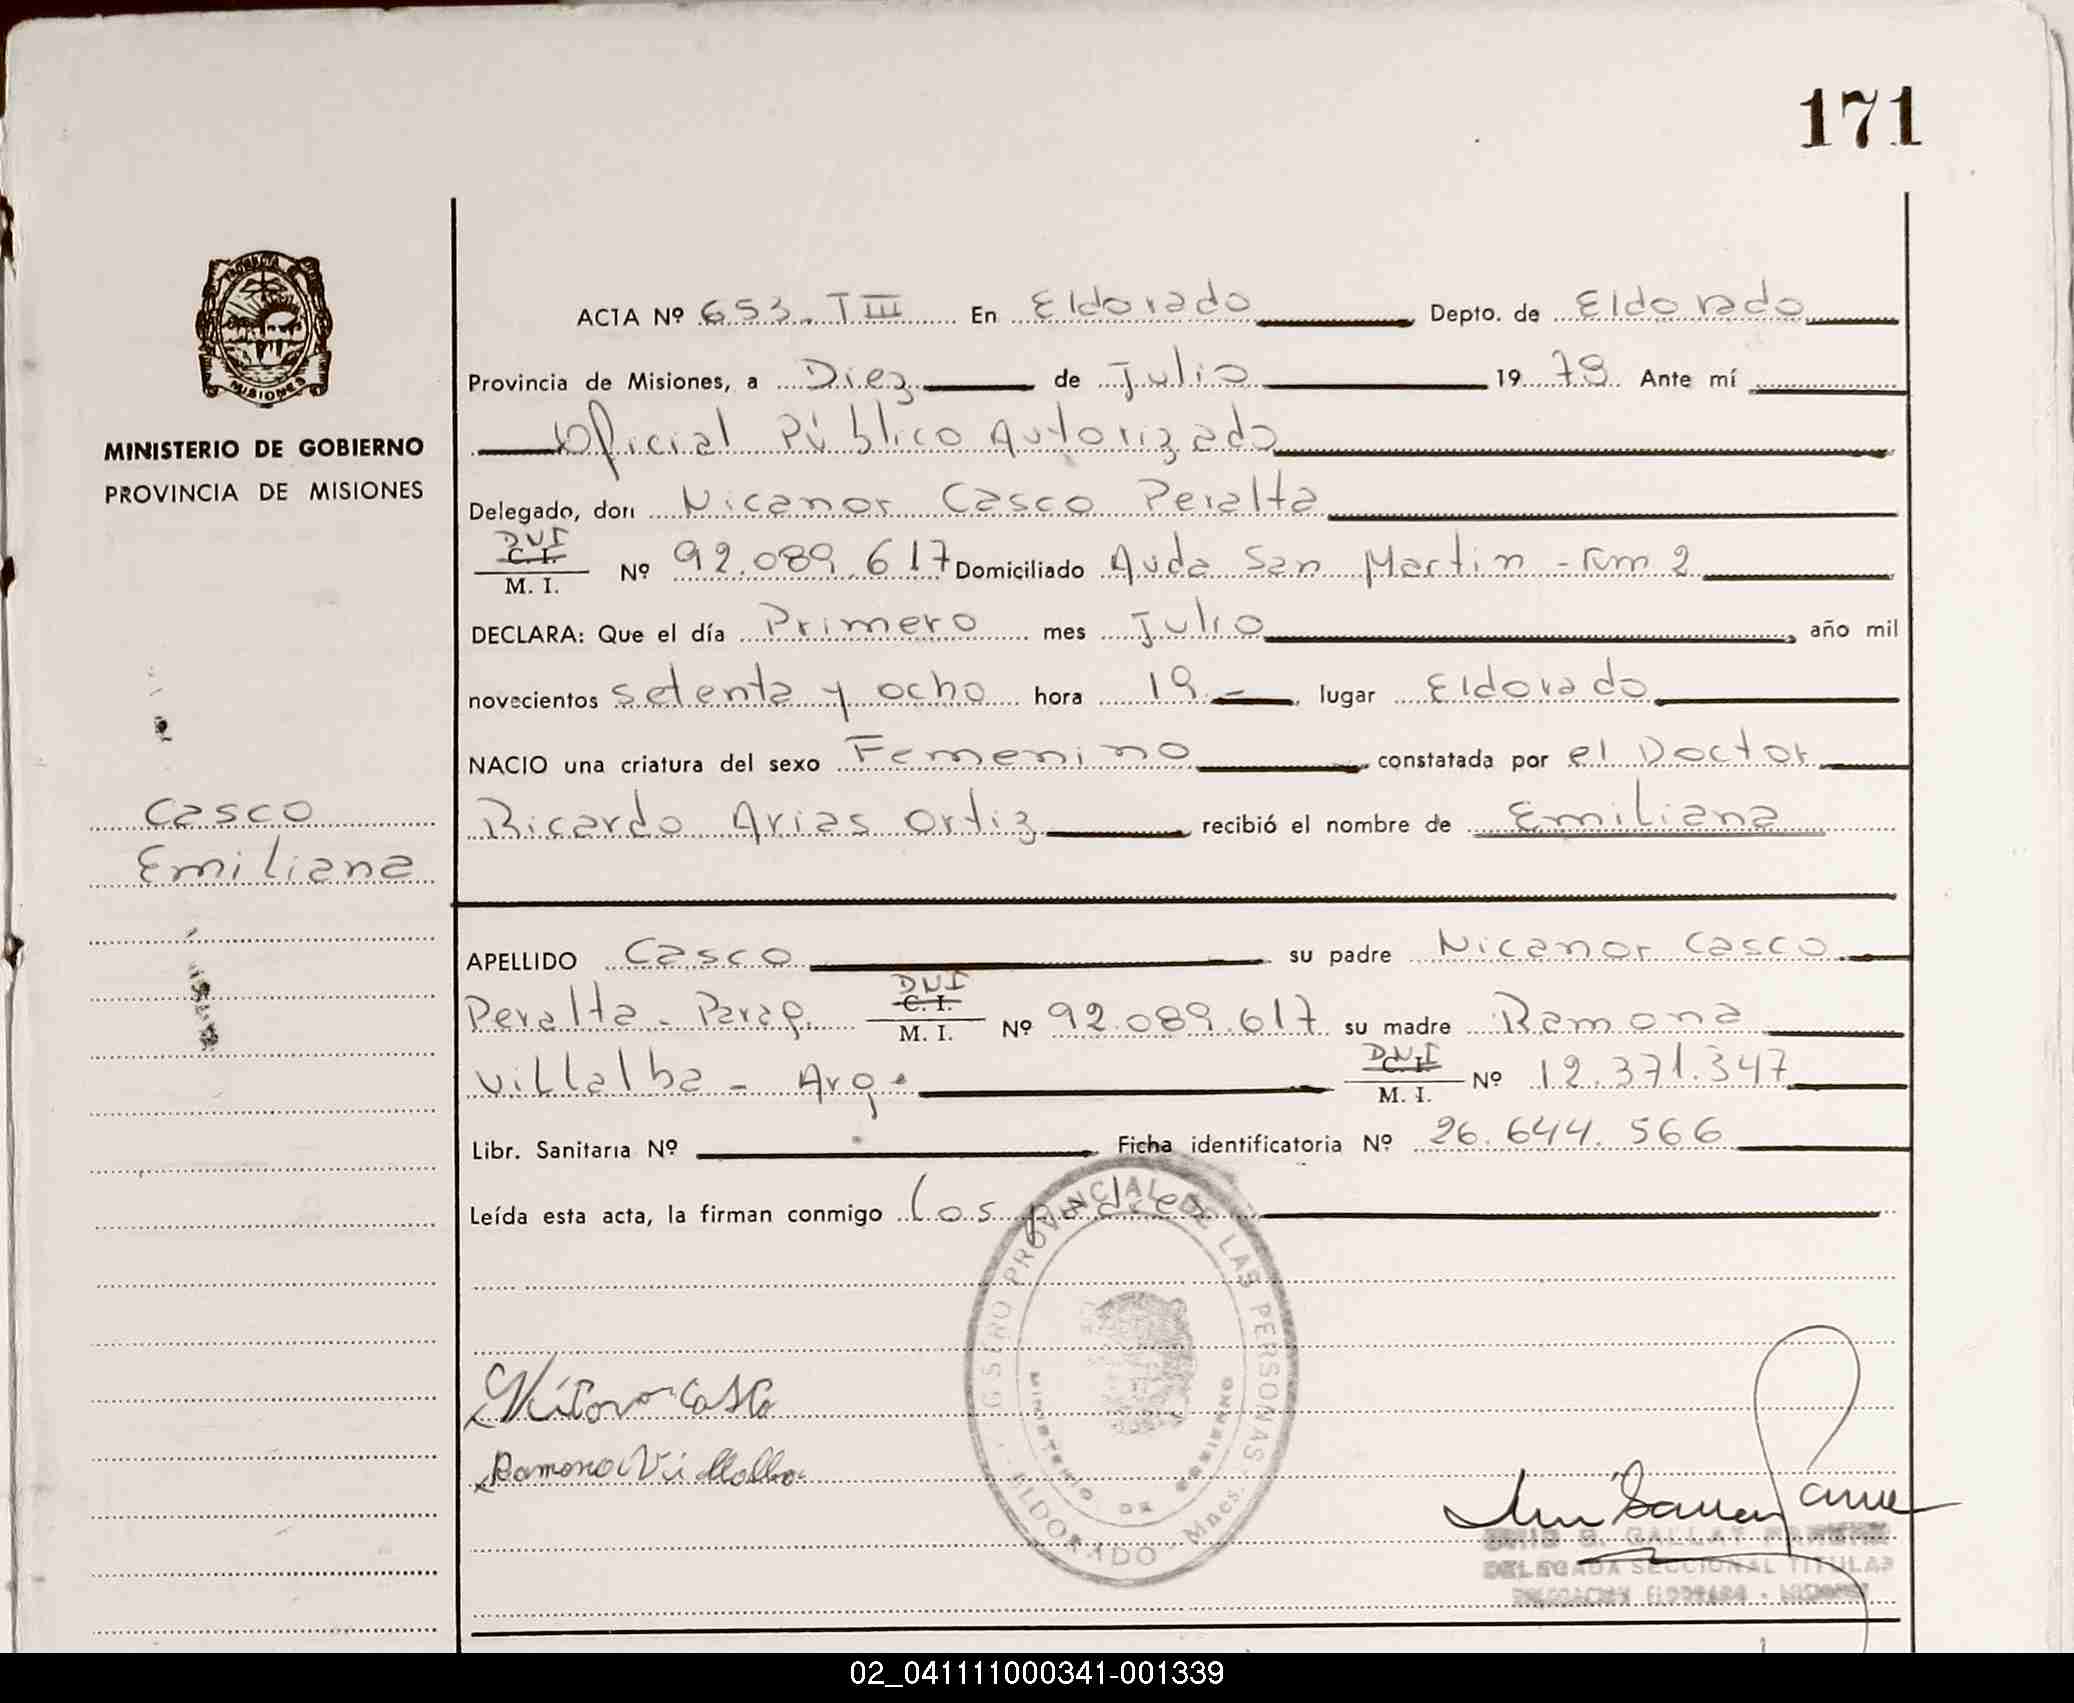 171
ACTA Nº 653. T III En Eldorado Depto. de Eldorado
Provincia de Misiones, a Diez de Julio 1978 Ante mí
Oficial Público Autorizado
MINISTERIO DE GOBIERNO
PROVINCIA DE MISIONES
Delegado, don Nicanor Casco Peralta
DNI
C. I.
M. I. Nº 92.089.617 Domiciliado Avda San Martin - Km 2
DECLARA: Que el día Primero mes Julio, año mil
novecientos setenta y ocho hora 19.-, lugar Eldorado
NACIO una criatura del sexo Femenino, constatada por el Doctor
Ricardo Arias Ortiz, recibió el nombre de Emiliana
Casco
Emiliana
APELLIDO Casco su padre Nicanor Casco
Peralta - Parag. DNI C. I. M. I. Nº 92.089.617 su madre Ramona
Villalba - Arg. DNI C. I. M. I. Nº 12.371.347
Libr. Sanitaria Nº Ficha identificatoria Nº 26.644.566
Leída esta acta, la firman conmigo los padres
PROVINCIAL DE LAS PERSONAS
MINISTERIO DE GOBIERNO
ELDORADO - Mnes.
Casco
Ramona Villalba
DELEGADA SECCIONAL TITULAR
DELEGACION ELDORADO - MISIONES
02_041111000341-001339